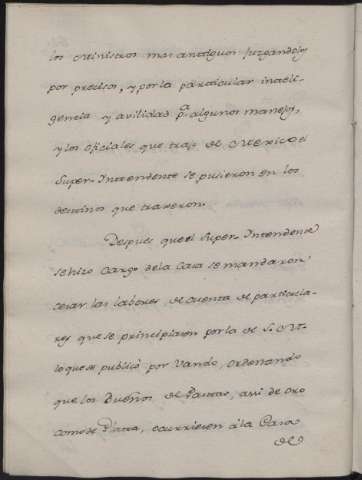 los Ministros mas antiguos juzgandolos
por precisos, y por la particular inteli-
gencia y avilidad pª. algunos manejos,
y los oficiales que trajo de Mexico el
Super-Intendente se pusieron en los
destinos que traxeron.
Despues que el Super Intendente
se hizo Cargo de la Casa se mandaron
cesar las labores, de cuenta de particula-
res que se principiaron por la de S. M.
lo que se publicò por Vando, ordenando
que los Dueños de Pastas, assi de oro
como de Plata, ocurriesen à la Casa
de